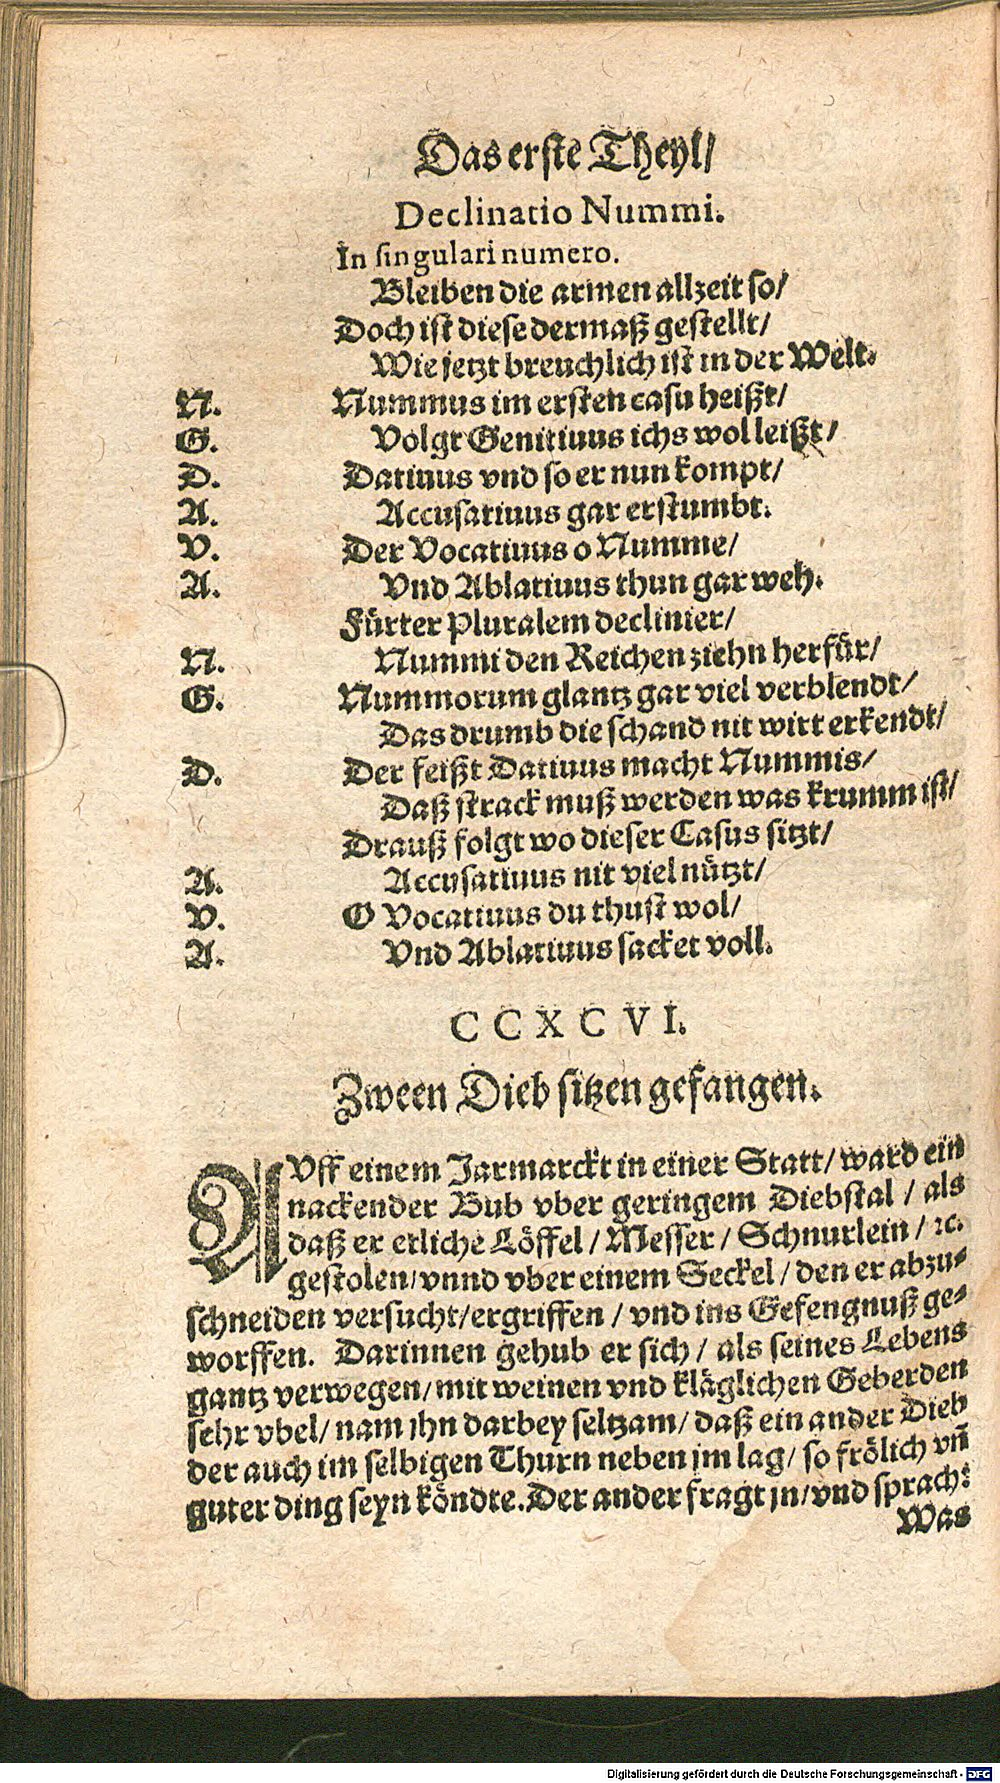 Das erste Theyl/
Declinatio Nummi.
In singulari numero.
Bleiben die armen allzeit so/
Doch ist diese dermaß gestellt/
Wie jetzt breuchlich ist in der Welt.
N. Nummus im ersten casu heißt/
G. Volgt Genitiuus ichs wol leißt/
D. Datiuus vnd so er nun kompt/
A. Accusatiuus gar erstumbt.
V. Der Vocatiuus o Numme/
A. Vnd Ablatiuus thun gar weh.
Fürter Pluralem declinier/
N. Nummi den Reichen ziehn herfür/
G. Nummorum glantz gar viel verblendt/
Das drumb die schand nit wirt erkendt/
D. Der feißt Datiuus macht Nummis/
Daß strack muß werden was krumm ist/
Drauß folgt wo dieser Casus sitzt/
A. Accusatiuus nit viel nützt/
V. O Vocatiuus du thust wol/
A. Vnd Ablatiuus sacket voll.
CCXCVI.
Zween Dieb sitzen gefangen.
AVff einem Jarmarckt in einer Statt/ ward ein
nackender Bub vber geringem Diebstal / als
daß er etliche Löffel / Messer / Schnürlein / ꝛc.
gestolen/ vnnd vber einem Seckel / den er abzu-
schneiden versucht/ ergriffen / vnd ins Gefengnuß ge-
worffen. Darinnen gehub er sich / als seines Lebens
gantz verwegen/ mit weinen vnd kläglichen Geberden
sehr vbel/ nam ihn darbey seltzam/ daß ein ander Dieb
der auch im selbigen Thurn neben jm lag/ so frölich vñ
guter ding seyn köndte. Der ander fragt jn/ vnd sprach:
Was
Digitalisierung gefördert durch die Deutsche Forschungsgemeinschaft - DFG